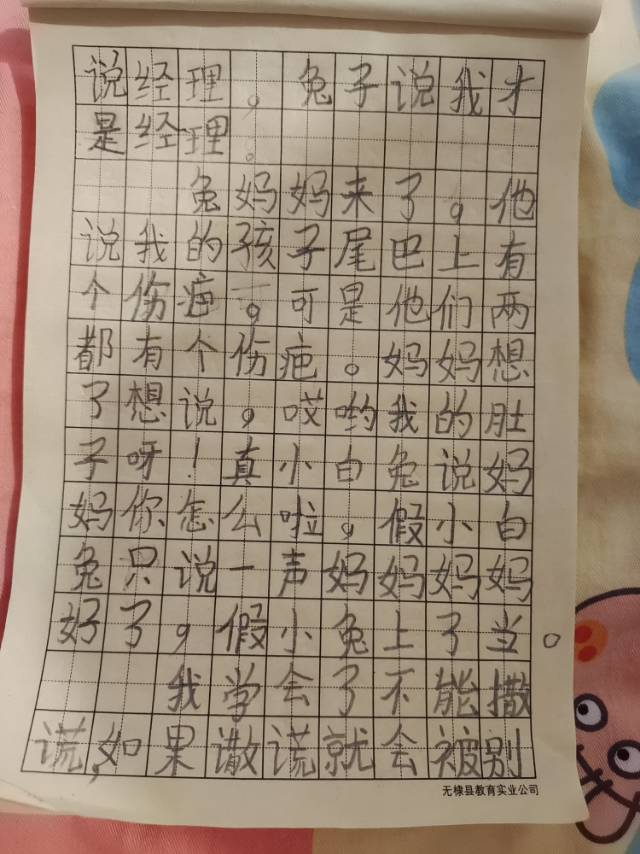 说经理。兔子说我才
是经理。
兔妈妈来了。他
说我的孩子尾巴上有
个伤疤。可是他们两
都有个伤疤。妈妈想
了想说,哎哟我的肚
子呀!真小白兔说妈
妈你怎么啦。假小白
兔只说一声妈妈妈妈
好了,假小兔上了当。
我学会了不能撒
谎,如果撒谎就会被别
无棣县教育实业公司